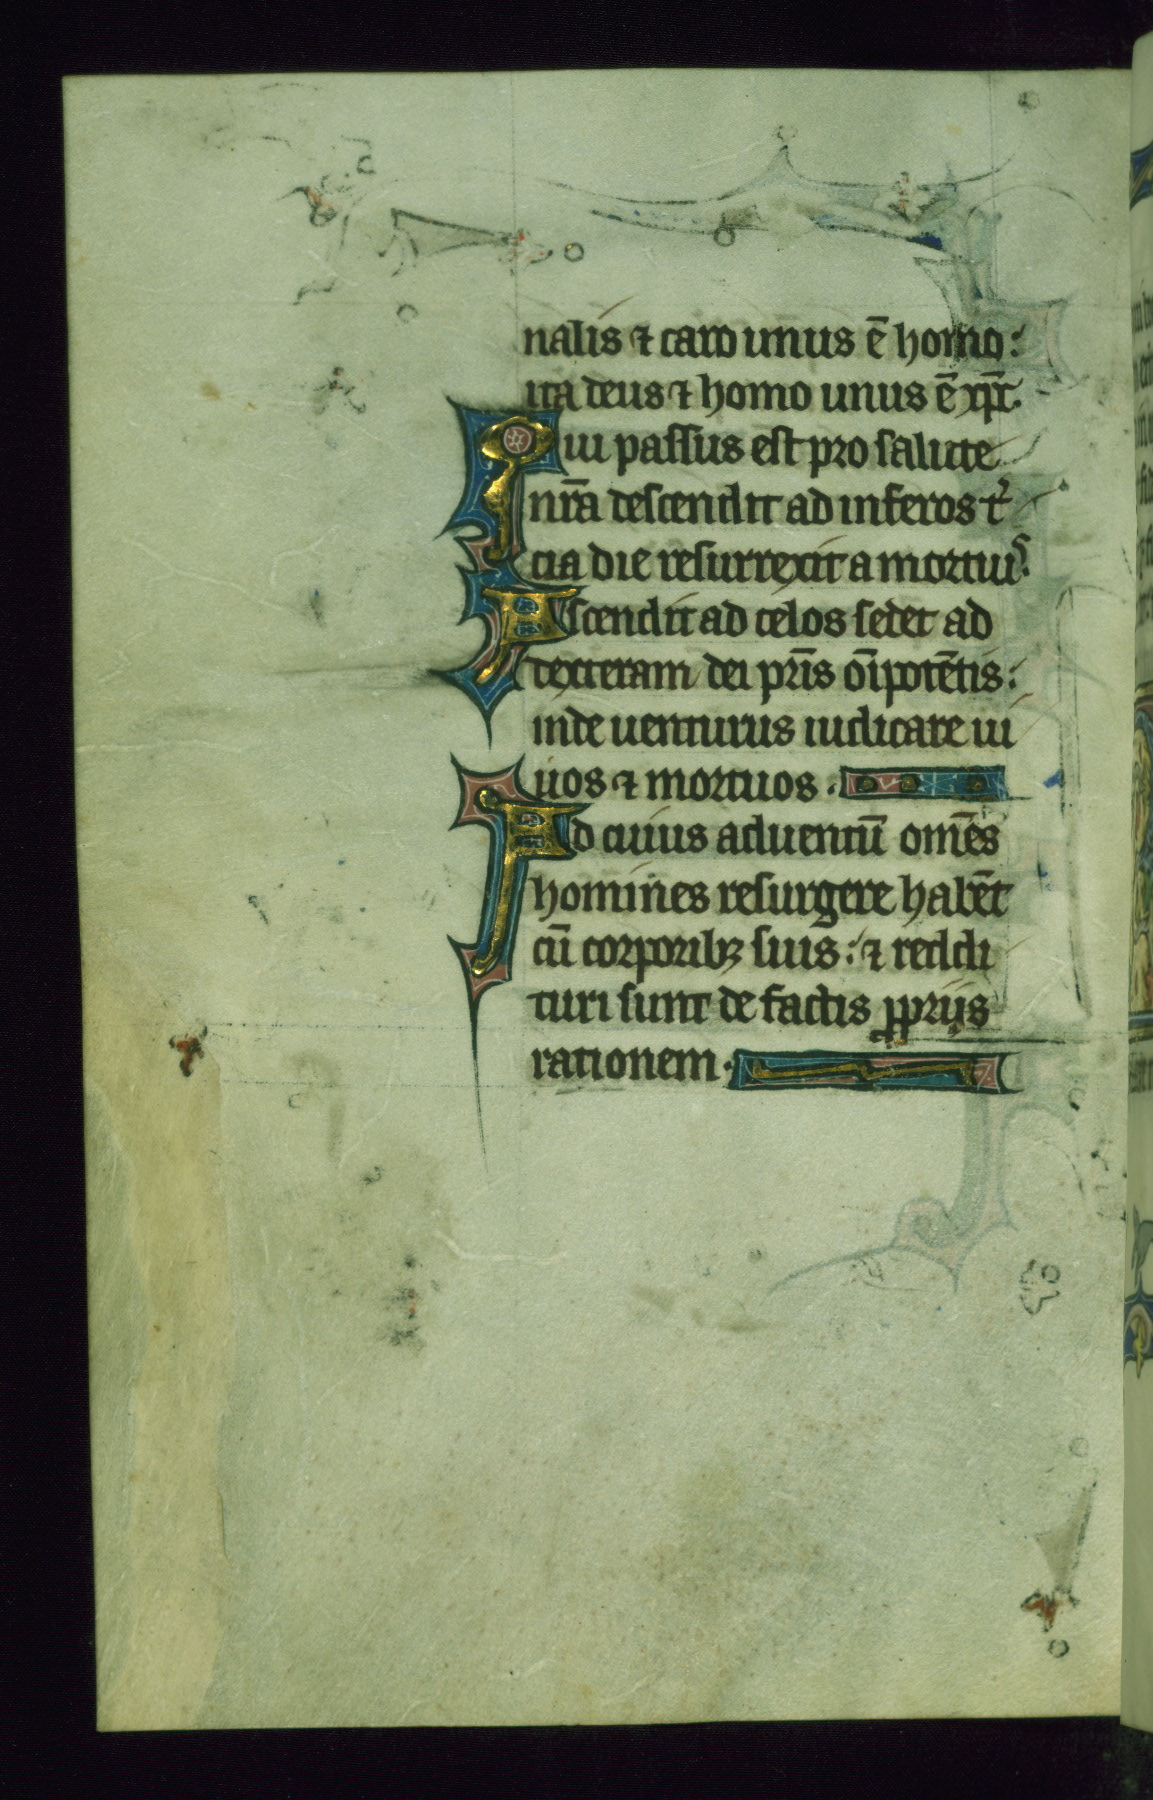 nalis ⁊ caro unus ē homo:
ita deus ⁊ homo unus ē xp̄c.
Qui passus est pro salute
nr̄a descendit ad inferos t͛
cia die resurrexit a mortuis.
Ascendit ad celos sedet ad
dexteram dei pr̄is om̄ipotētis:
inde uenturus iudicare ui
uos ⁊ mortuos.
Ad cuius aduentū om̄es
homines resurgere habēt
cū corporibꝫ suis: ⁊ reddi
turi sunt de factis ꝓprijs
rationem.